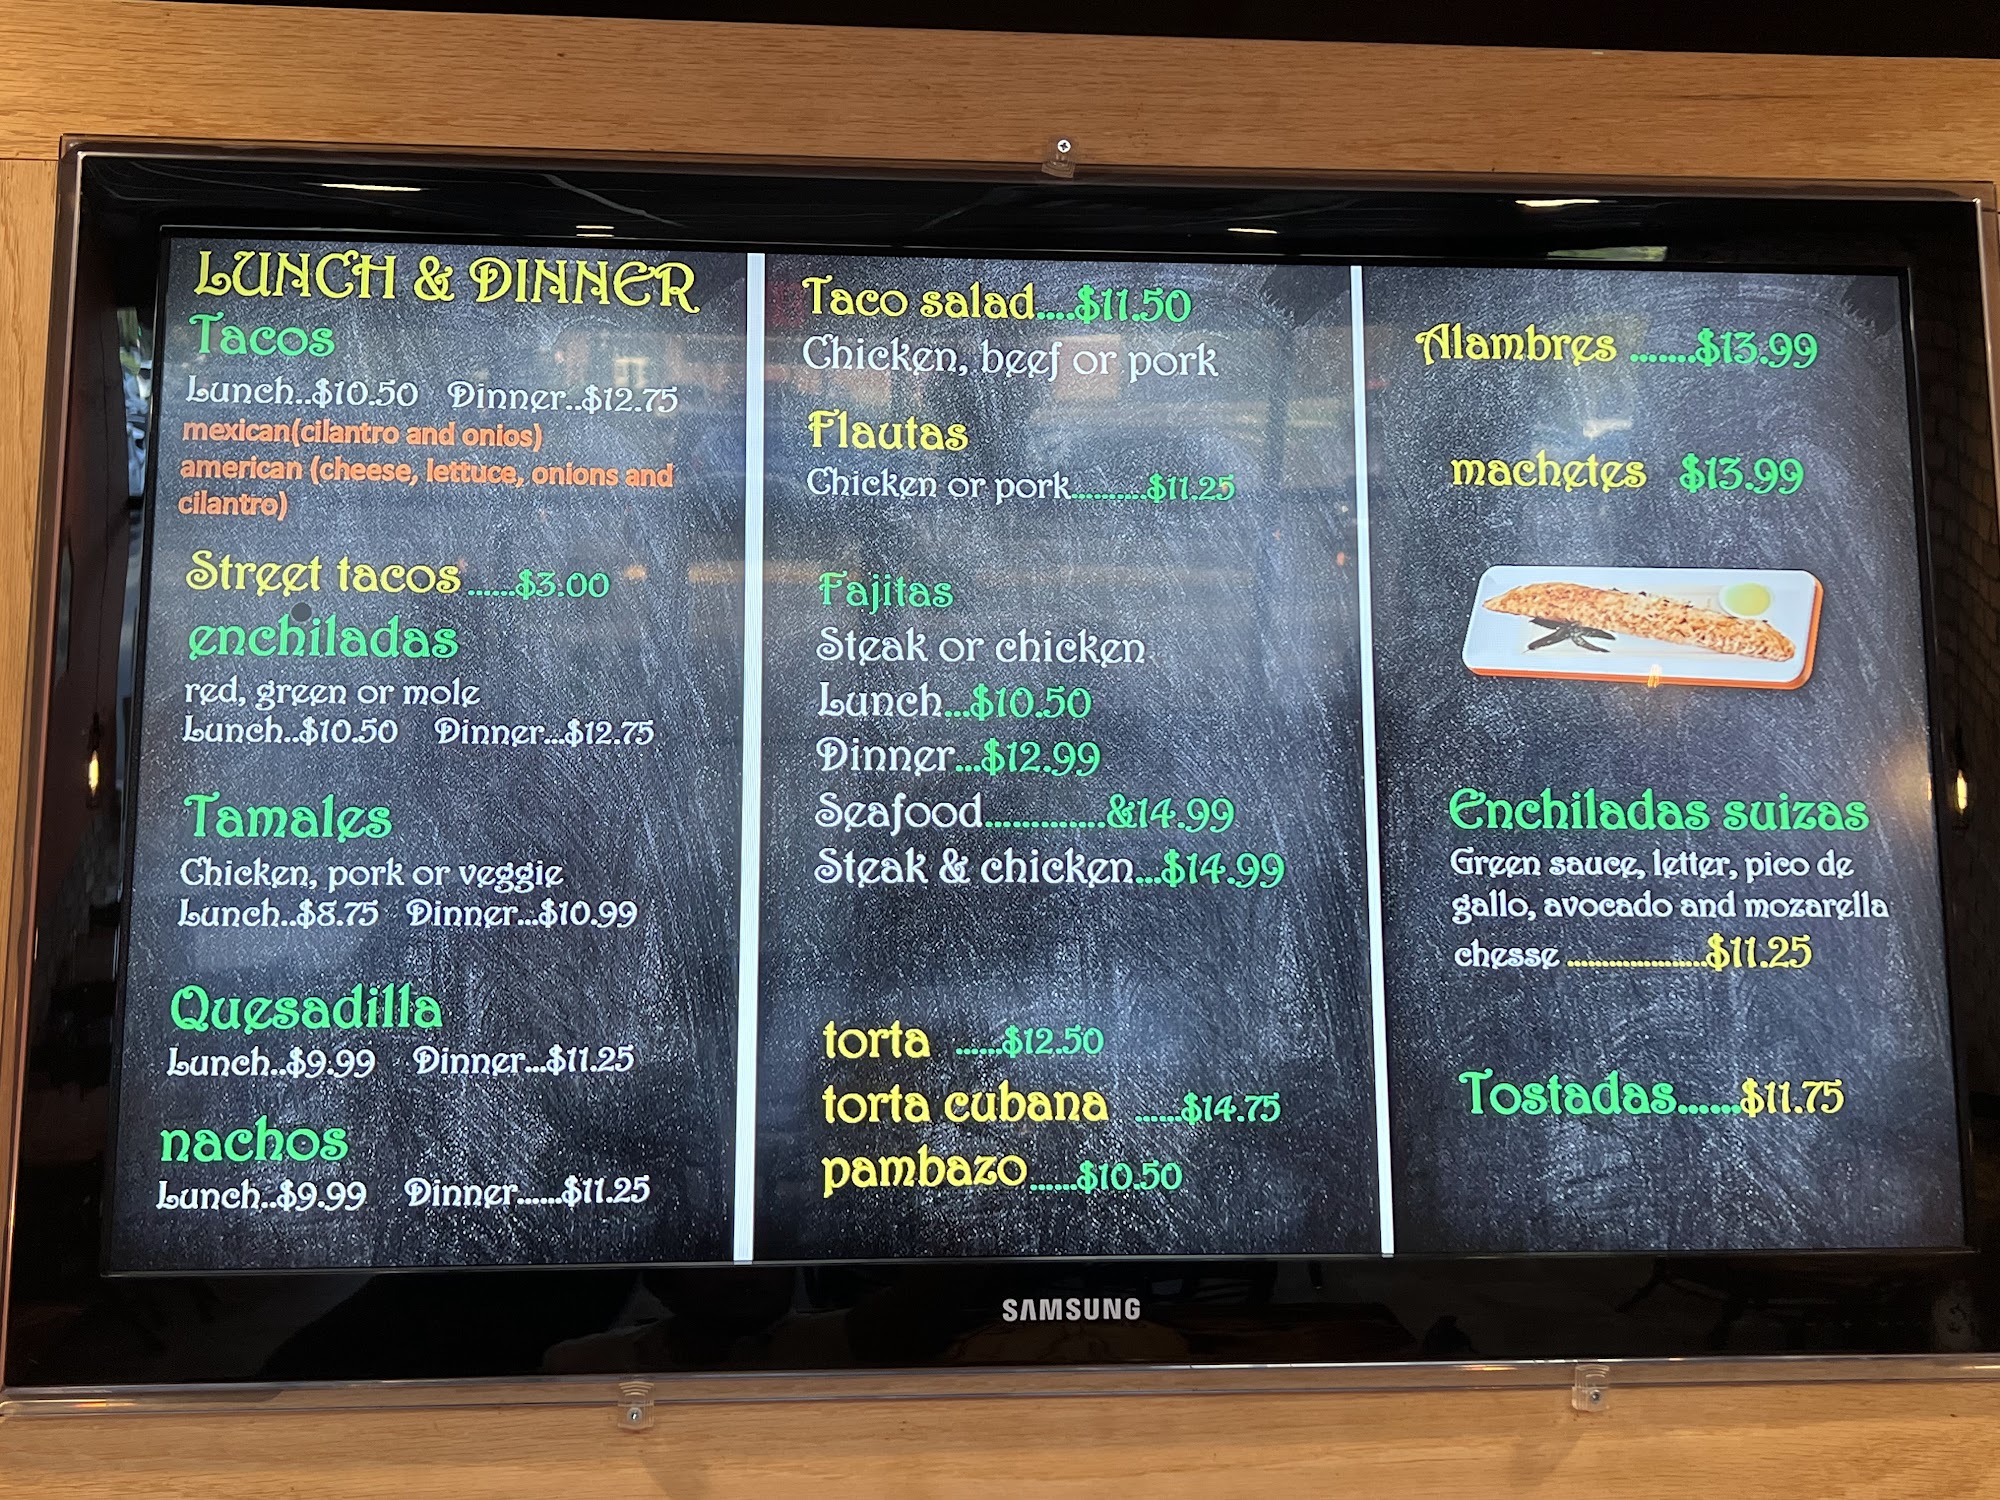 LUNCH & DINNER
Tacos
Lunch..$10.50 Dinner..$12.75
mexican(cilantro and onios)
american (cheese, lettuce, onions and
cilantro)
Street tacos ......$3.00
enchiladas
red, green or mole
Lunch..$10.50 Dinner...$12.75
Tamales
Chicken, pork or veggie
Lunch..$8.75 Dinner...$10.99
Quesadilla
Lunch..$9.99 Dinner...$11.25
nachos
Lunch..$9.99 Dinner......$11.25
Taco salad....$11.50
Chicken, beef or pork
Flautas
Chicken or pork..........$11.25
Fajitas
Steak or chicken
Lunch...$10.50
Dinner...$12.99
Seafood.............&14.99
Steak & chicken...$14.99
torta ......$12.50
torta cubana ......$14.75
pambazo......$10.50
Alambres .......$13.99
machetes $13.99
Enchiladas suizas
Green sauce, letter, pico de
gallo, avocado and mozarella
chesse ....................$11.25
Tostadas......$11.75
SAMSUNG